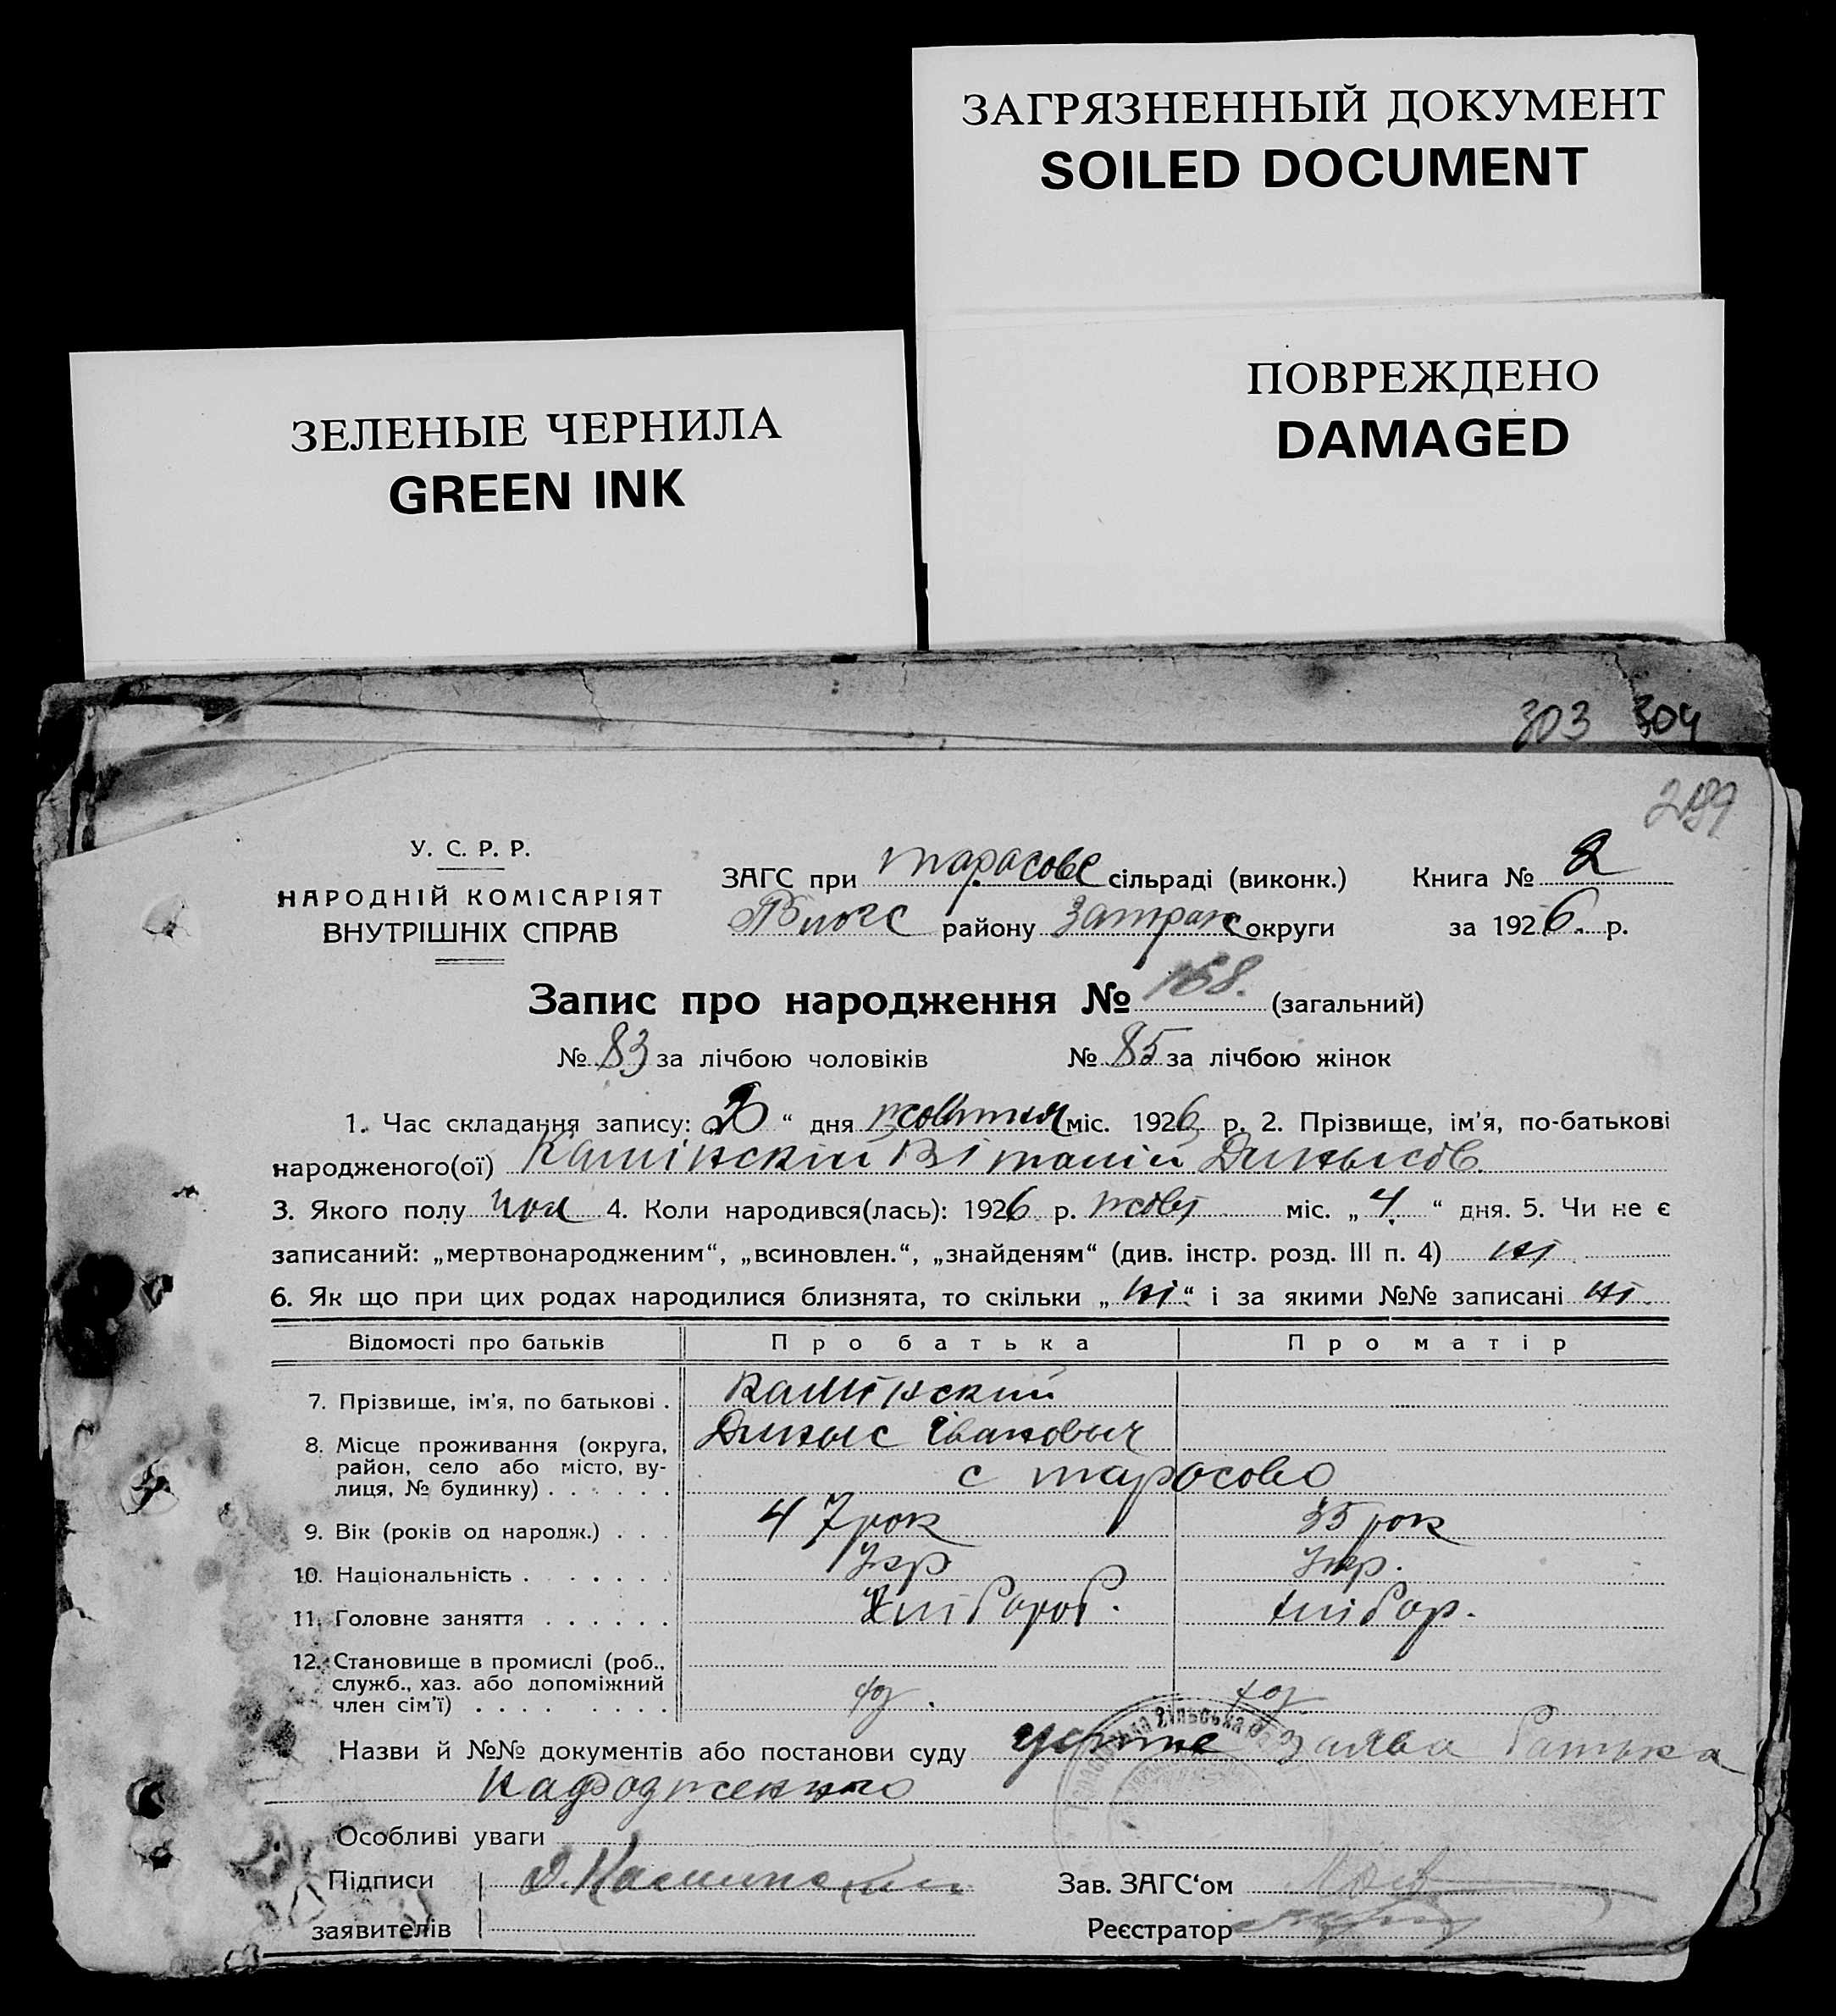 ЗАГРЯЗНЕННЫЙ ДОКУМЕНТ
SOILED DOCUMENT
ПОВРЕЖДЕНО
DAMAGED
ЗЕЛЕНЫЕ ЧЕРНИЛА
GREEN INK
303 304
289
У. С. Р. Р.
НАРОДНІЙ КОМІСАРІЯТ
ВНУТРІШНІХ СПРАВ
ЗАГС при Тарасове сільраді (виконк.) Книга № 2
району округи за 1926 р.
Запис про народження № 168. (загальний)
№ 83 за лічбою чоловіків № 85 за лічбою жінок
1. Час складання запису: „ “ дня жовтня міс. 1926 р. 2. Прізвище, ім'я, по-батькові
народженого(ої) Камінскій Віталій
3. Якого полу чол 4. Коли народився(лась): 1926 р. жовт міс. „ 4 “ дня. 5. Чи не є
записаний: „мертвонародженим“, „всиновлен.“, „знайденям“ (див. інстр. розд. III п. 4) ні
6. Як що при цих родах народилися близнята, то скільки „ ні “ і за якими №№ записані ні
Відомості про батьків Про батька Про матір
7. Прізвище, ім'я, по батькові . Камінский
Іванович
8. Місце проживання (округа,
район, село або місто, ву-
лиця, № будинку) . . . . . . с Тарасово
9. Вік (років од народж.) . . . 47 рок 35 рок
10. Національність . . . . . Укр Укр.
11. Головне заняття . . . . . . Хлібороб. хлібор.
12. Становище в промислі (роб.,
служб., хаз. або допоміжний
член сім'ї) . . . . . . . . хоз. хоз
Назви й №№ документів або постанови суду устне заява батька
народженного
Особливі уваги
Підписи Д. Каминский Зав. ЗАГС‘ом
заявителів Реєстратор